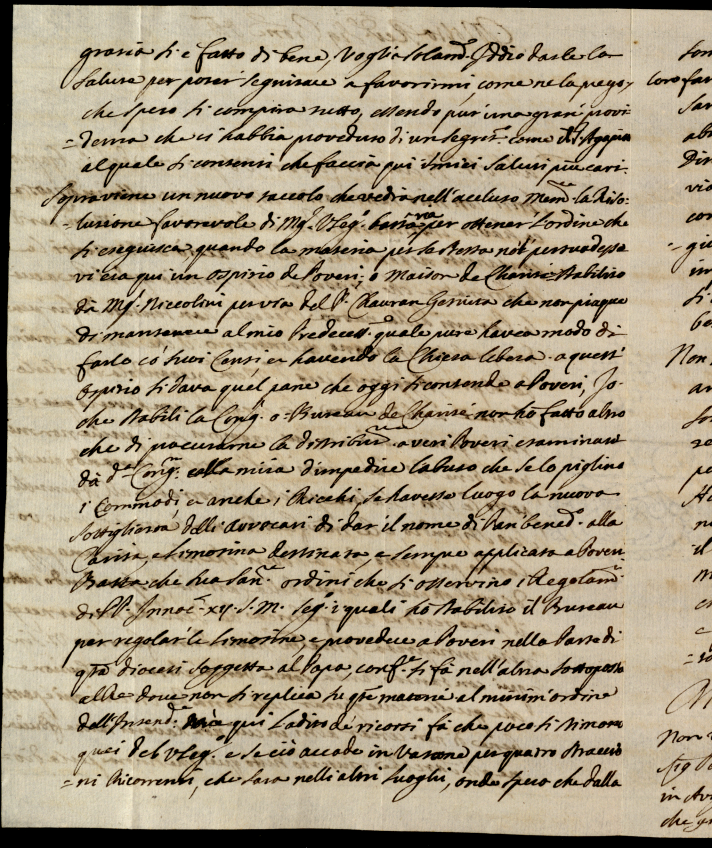 grazia si è fatto di bene. Voglia solam.e Iddio darle la
salute per poter seguitare a favorirmi, come ne la prego,
che spero si compirà tutto, essendo pur una gran provi-
=denza che ci habbia proveduto di un segret.o come il S.r Agapito
al quale si contenti che faccia qui i miei saluti più cari.
Sopraviene un nuovo che vedrà nell'accluso Mem.le la Riso-
=luzione favorevole di Mg.r VLeg.o per ottener l'ordine che
si eseguisca quando la materia per se stessa non persuadesse
vi era qui un ospizio de Poveri, o Maison de Charité stabilito
da Mg.r Niccolini per via del P. Chauran Gesuita che non piaque
di mantenere al mio Predecess.e quale pure havea modo di
farlo co' suoi Censi et havendo la Chiesa libera. a quest'
ospizio si dava quel pane che oggi si contende a Poveri, Io
che stabilì la Cong.e o Bureau de Charité non ho fatto altro
che di procurarne la distribuz.ne a veri Poveri esaminati
da d.a Cong.e colla mira d'impedire l'abuso che se lo piglino
i Commodi et anche i Ricchi, se havesse luogo la nuova
sottigliezza delli Avvocati di dar il nome di Pan bened.o alla
Carità, e limosina destinata, e sempre applicata a Poveri
Basta che Sua San.tà ordini che si osservino i Regolam.ti
di PP. Innoc. XII. S. M. seg. i quali ho stabilito il Bureau
per regolar le limosine e provedere a Poveri nella Parte di
q.ta diocesi soggetta al Papa, conf.e si fà nell'altra sottoposta
al Re dove non si replica su q.te materie al minim'ordine
dell'Intend.e qui l'adito de ricorsi fà che poco si stimano
quei del VLeg.o e se ciò accade in per quattro straccio
=ni Ricorrenti, che sarà nelli altri luoghi, onde spero che dalla